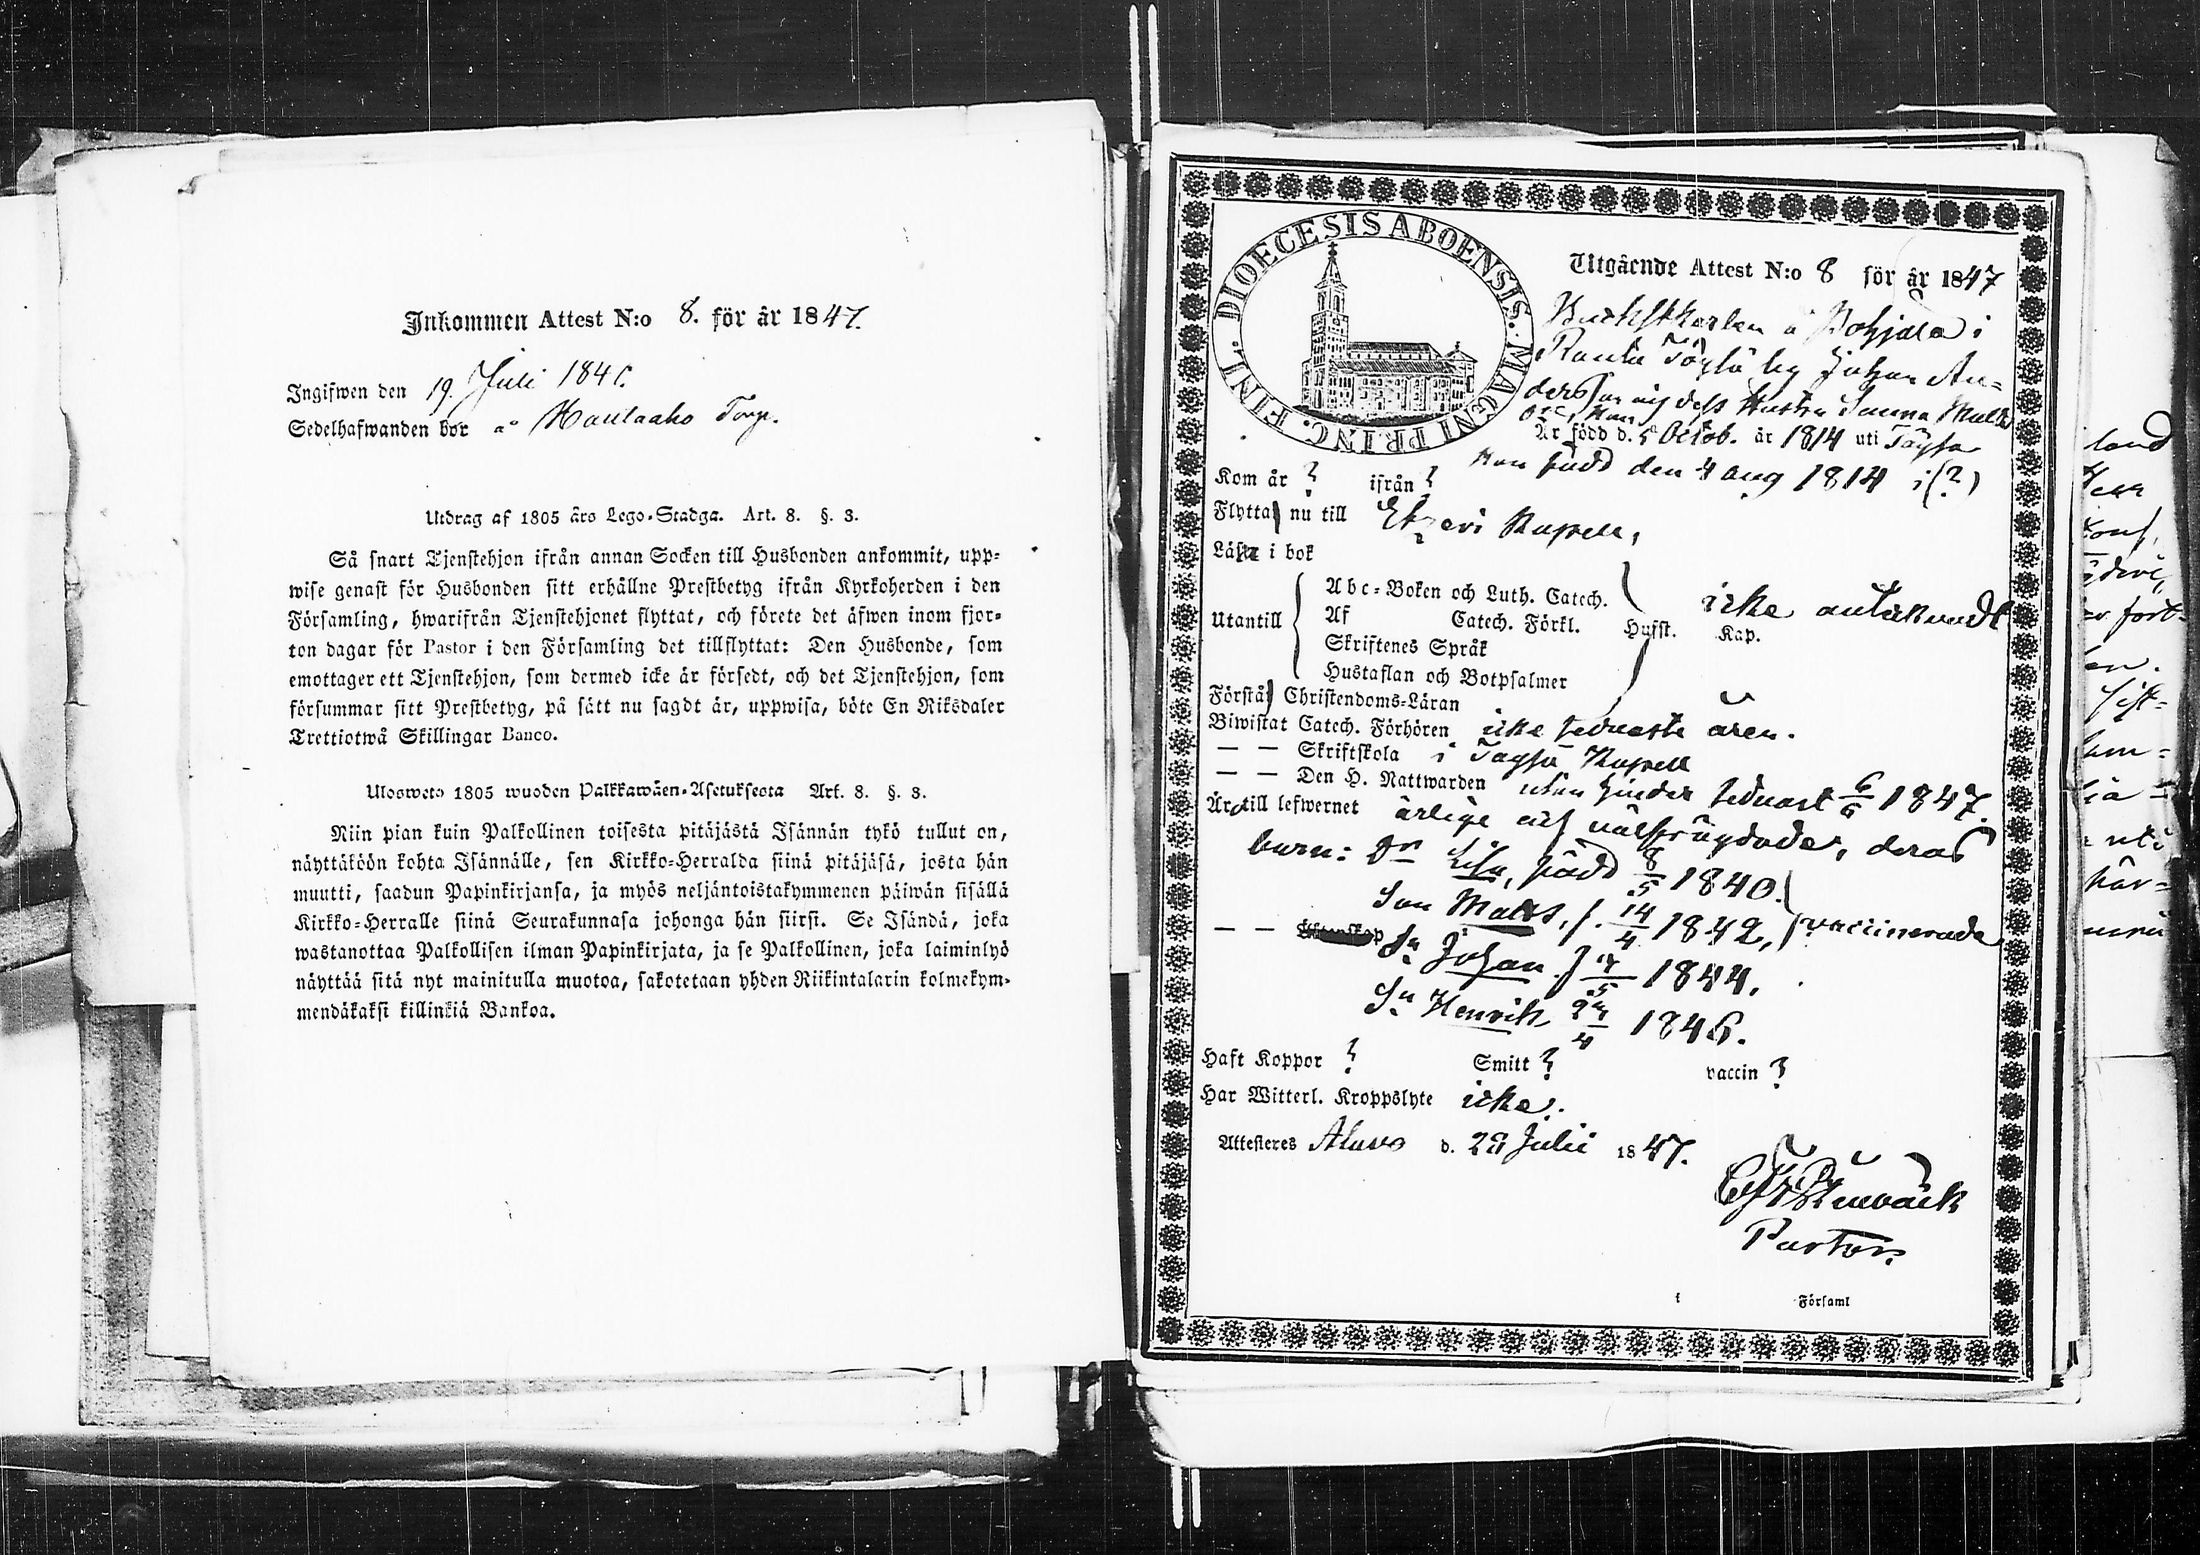 Inkommen Attest N:o 8. för år 1847.
Ingifwen den 19. Juli 184
Sedelhafwanden bor å Hautaaho Torp.
Utdrag af 1805 års Lego-Stadga. Art. 8. §. 3.
Så snart Tjenstehjon ifrån annan Socken till Husbonden ankommit, upp-
wise genast för Husbonden sitt erhållne Prestbetyg ifrån Kyrkoherden i den
Församling, hwarifrån Tjenstehjonet flyttat, och förete det äfwen inom fjor-
ton dagar för Pastor i den Församling det tillflyttat: Den Husbonde, som
emottager ett Tjenstehjon, som dermed icke är försedt, och det Tjenstehjon, som
försummar sitt Prestbetyg, på sätt nu sagdt är, uppwisa, böte En Riksdaler
Trettiotwå Skillingar Banco.
Ulosweto 1805 wuoden Palkkawäen-Asetuksesta Art. 8. §. 3.
Niin pian kuin Palkollinen toisesta pitäjästä Isännän tykö tullut on,
näyttäköön kohta Isännälle, sen Kirkko-Herralda siinä pitäjäsä, josta hän
muutti, saadun Papinkirjansa, ja myös neljäntoistakymmenen päiwän sisällä
Kirkko-Herralle siinä Seurakunnasa johonga hän siirsi. Se Isändä, joka
wastanottaa Palkollisen ilman Papinkirjata, ja se Palkollinen, joka laiminlyö
näyttää sitä nyt mainitulla muotoa, sakotetaan yhden Riikintalarin kolmekym-
mendäkaksi killinkiä Bankoa.
DIOECESIS ABOENSIS. MAGNI PRINC. FINL.
Utgående Attest N:o 8 för år 1847
å Pohjala i
Ranta Töysä by Johan An-
dersson och dess Hustru Sanna
Han
Är född d. 5 Octob. år 1814 uti Töysä
Hon född den 4 Aug 1814 i (?)
Kom år ? ifrån ?
Flytta nu till Etseri Kapell,
Läsa i bok
Abc-Boken och Luth. Catech.
Utantill Af Catech. Förkl. Hufst. Kap. icke antecknadt
Skriftenes Språk
Hustaflan och Botpsalmer
Förstå Christendoms-Läran
Biwistat Catech. Förhören icke sednaste åren.
— — Skriftskola i Töysä Kapell
— — Den H. Nattwarden utan hinder sednast 6/6 1847.
Är till lefwernet ärlige och välfrägdade, deras
barn: Dr Lisa, född 8/5 1840.
Son Matts, f. 14/4 1842, vaccinerade
— — Sn Johan f 14/5 1844.
Sn Henrik 24/4 1846.
Haft Koppor ? Smitt ? vaccin ?
Har Witterl. Kroppslyte icke.
Attesteres Alavo d. 28 Julii 1847.
Stenbäck
Pastor.
i Församl
land